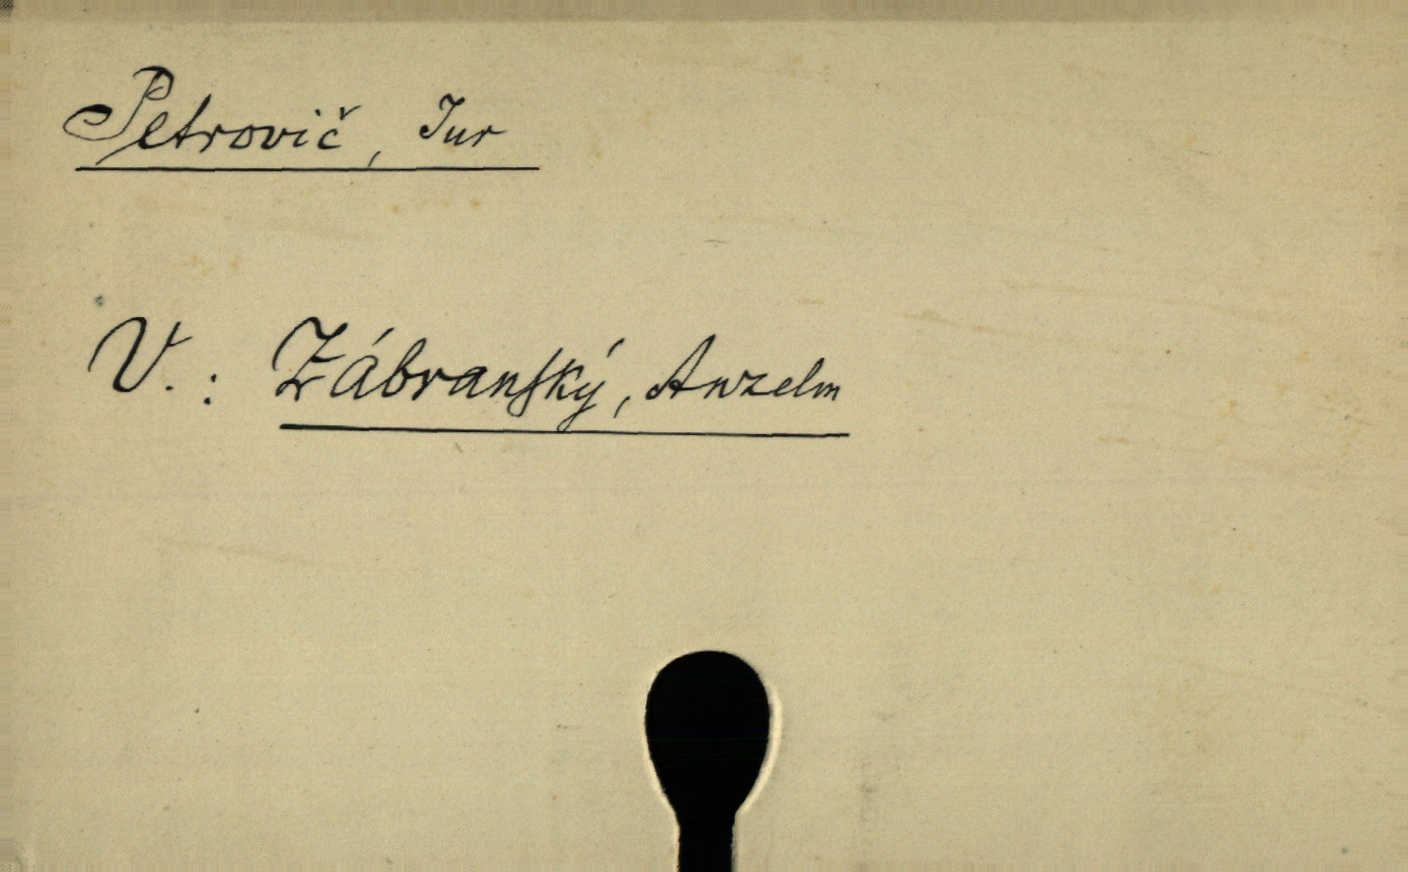 Petrovič, Jur
V.: Zábranský, Anzelm